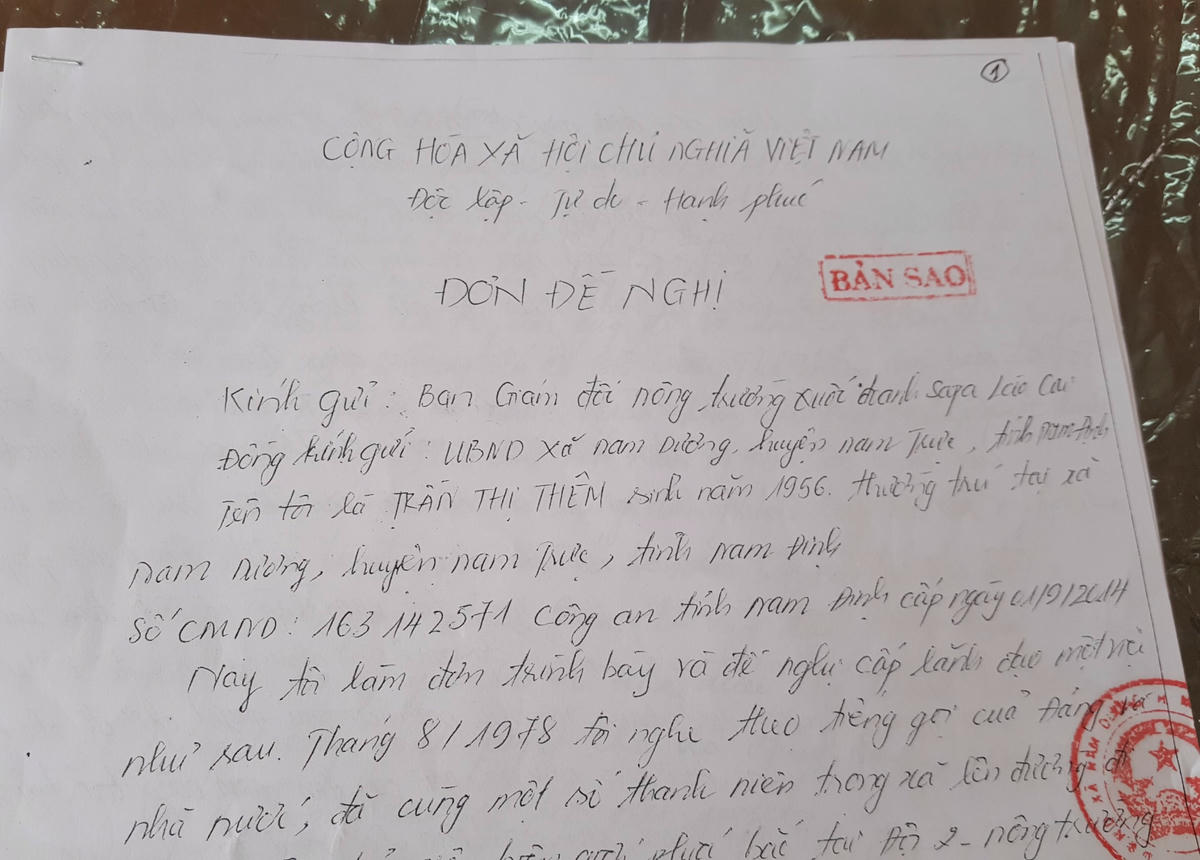 1
CỘNG HÒA XÃ HỘI CHỦ NGHĨA VIỆT NAM
Độc lập - Tự do - Hạnh phúc
BẢN SAO
ĐƠN ĐỀ NGHỊ
Kính gửi : Ban Giám đốc nông trường xuất thanh Sapa Lào Cai
Đồng kính gửi : UBND xã nam Dương, huyện nam Trực, tỉnh nam Định
Tên tôi là TRẦN THỊ THÊM sinh năm 1956. thường trú tại xã
nam Dương, huyện nam Trực, tỉnh nam Định
Số CMND : 163142571 Công an tỉnh nam Định cấp ngày 01/9/2014
Nay tôi làm đơn trình bày và đề nghị cấp lãnh đạo một việc
như sau. Tháng 8/1978 tôi nghe theo tiếng gọi của Đảng và
nhà nước, đã cùng một số thanh niên trong xã lên đường đi
phía bắc tại Đội 2 - nông trường